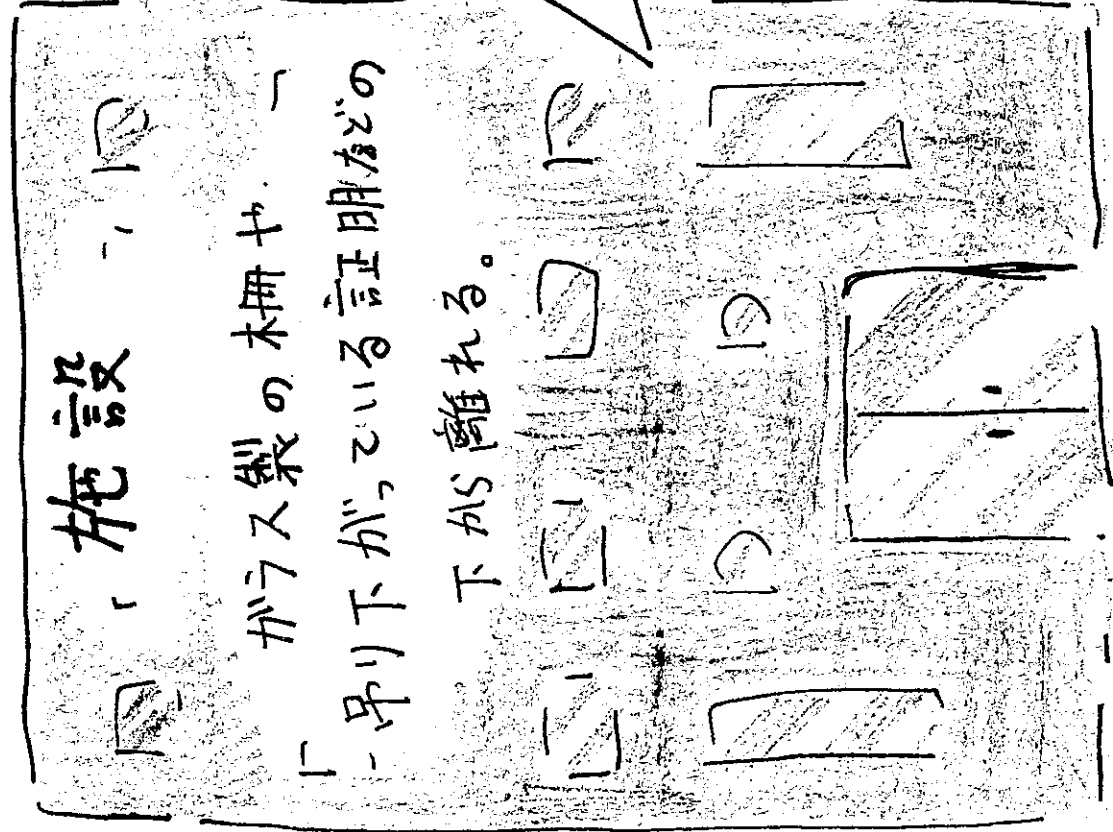 施設
ガラス製の柵や
吊り下がっている証明などの
下から離れる。